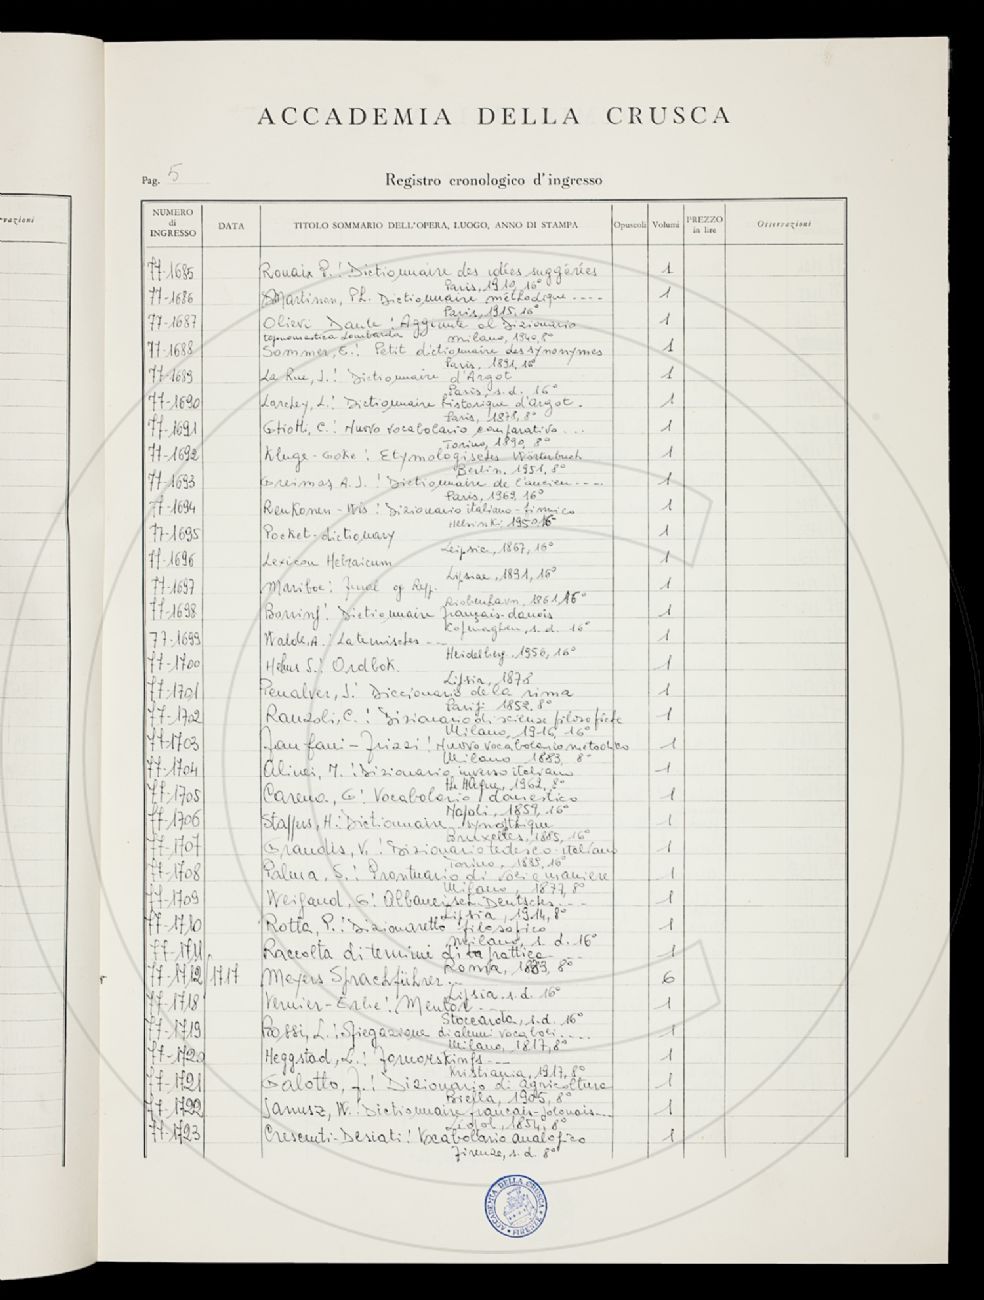 ACCADEMIA DELLA CRUSCA
Pag. 5
Registro cronologico d'ingresso
vazioni
NUMERO di INGRESSO DATA TITOLO SOMMARIO DELL'OPERA, LUOGO, ANNO DI STAMPA Opuscoli Volumi PREZZO in lire Osservazioni
77-1685 Rouaix P.: Dictionnaire des idées suggérées 1
Paris, 1910, 16°
77-1686 Martinon, Ph. Dictionnaire méthodique .... 1
Paris, 1915, 16°
77-1687 Olivieri Dante: Aggiunte al Dizionario 1
toponomastica Lombarda Milano, 1940, 8°
77-1688 Sommer, E.: Petit dictionnaire des synonymes 1
Paris, 1891, 16°
77-1689 La Rue, J.: Dictionnaire d'Argot 1
Paris, s.d. 16°
77-1690 Larchey, L: Dictionnaire historique d'argot. 1
Paris, 1878, 8°
77-1691 Ghiotti, C.: Nuovo vocabolario comparativo ... 1
Torino, 1890, 8°
77-1692 Kluge-Götze: Etymologisches Wörterbuch 1
Berlin, 1951, 8°
77-1693 Greimas A.J.: Dictionnaire de l'ancien .... 1
Paris, 1969, 16°
77-1694 Renkonen - : Dizionario italiano-finnico 1
Helsinki 1950 16°
77-1695 Pocket-dictionary 1
Leipsic, 1867, 16°
77-1696 Lexicon Hebraicum 1
Lipsiae, 1891, 16°
77-1697 1
1861, 16°
77-1698 Dictionnaire français-danois 1
s.d. 16°
77-1699 Walde, A.: Lateinisches --- 1
Heidelberg, 1956, 16°
77-1700 Helms S.: Ordbok. 1
Lipsia, 1878
77-1701 Penalver, J.: Diccionario de la rima 1
Parigi 1852, 8°
77-1702 Ranzoli, C.: Dizionario di scienze filosofiche 1
Milano, 1916, 16°
77-1703 Fanfani-Frizzi: Nuovo vocabolario metodico 1
Milano 1883, 8°
77-1704 Alinei, M.: Dizionario inverso italiano 1
The Hague, 1962, 8°
77-1705 Carena, G: Vocabolario domestico 1
Napoli, 1859, 16°
77-1706 Stappers, H: Dictionnaire synoptique 1
Bruxelles, 1885, 16°
77-1707 Grandis, V.: Dizionario tedesco-italiano 1
Torino, 1885, 16°
77-1708 Palma, S.: Prontuario di voci e maniere 1
Milano, 1877, 8°
77-1709 Weigand, G: Albanesisch Deutsches ... 1
Lipsia, 1914, 8°
77-1710 Rotta, P.: Dizionaretto filosofico 1
Milano, s. d. 16°
77-1711 Raccolta di termini di ... 1
Roma, 1883, 8°
77-1712 1717 Meyers Sprachführer .. 6
Lipsia s.d. 16°
77-1718 Mentor ... 1
Stoccarda, s.d. 16°
77-1719 Rossi, L.: Spiegazione di alcuni vocaboli .... 1
Milano, 1817, 8°
77-1720 Heggstad, L.: --- 1
Kristiania, 1917, 8°
77-1721 Galotto, F.: Dizionario di agricoltura 1
Biella, 1905, 8°
77-1722 Janusz, W: Dictionnaire français-polonais... 1
1854, 8°
77-1723 Vocabolario analogico 1
Firenze, s.d. 8°
ACCADEMIA DELLA CRUSCA • FIRENZE •